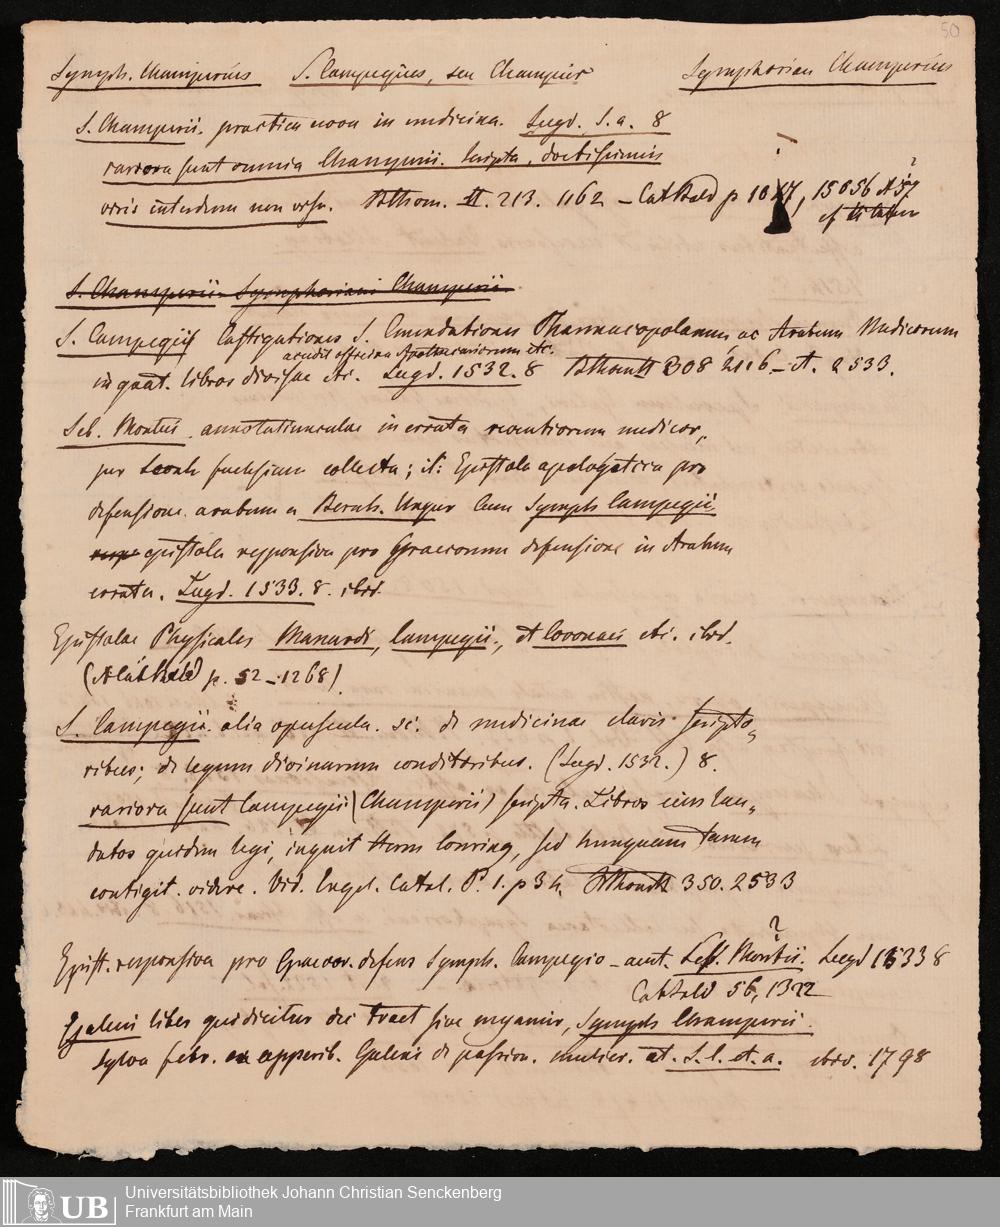 50
Symph. Champerius S. Campegius, seu Champier Symphorian Champerius
S. Champerii. practica nova in medicina. Lugd. S. a. 8
rariora sunt omnia Champerii. scripta, doctissimis
viris interdum non visa. II. 213. 1162 – Cat Bald p 15656
S. Champerii Symphoriani Champerii
S. Campegii Castigationes S. Emendationes Pharmacopolarum, ac Arabum Medicorum
accedit officina Apothecariorum etc.
in quat. libros divisae etc. Lugd. 1532. 8 308 2116 – 2533.
Seb. Montui annotatiunculae in errata recentiorum medicor,
per Leonh fuchsium collecta; it: Epistola apologetica pro
defensione arabum a Bernh. Unger cum Symph Campegii
epistola responsiva pro Graecorum defensione in Arabum
errata. Lugd. 1533. 8. ibid.
Epistolae Physicales Manardi, Campegii, et Coronaei etc. ibid.
p. 52 – 1268)
S. Campegii alia opuscula. sc: de medicinae claris scripto„
ribus; de legum divinarum conditoribus. (Lugd. 1532.) 8.
rariora sunt Campegii (Champerii) scripta. Libros eius lau„
datos quidem legi, inquit Herm Conring, sed nunquam tamen
contigit videre. Vid. Engel. Catal. P. 1. p 34. 350. 2533
Epist. responsiva pro Graecor. defens Symph. Campegio – aut. Montii. ? Lugd 1533 8
Cat Bald 56, 1322
Galeni liber qui dicitur sive Symph Champerii
Sylva febr. Galeni de passion. mulier. et. S. l. et. a. ibid. 1798
UB Universitätsbibliothek Johann Christian Senckenberg
Frankfurt am Main